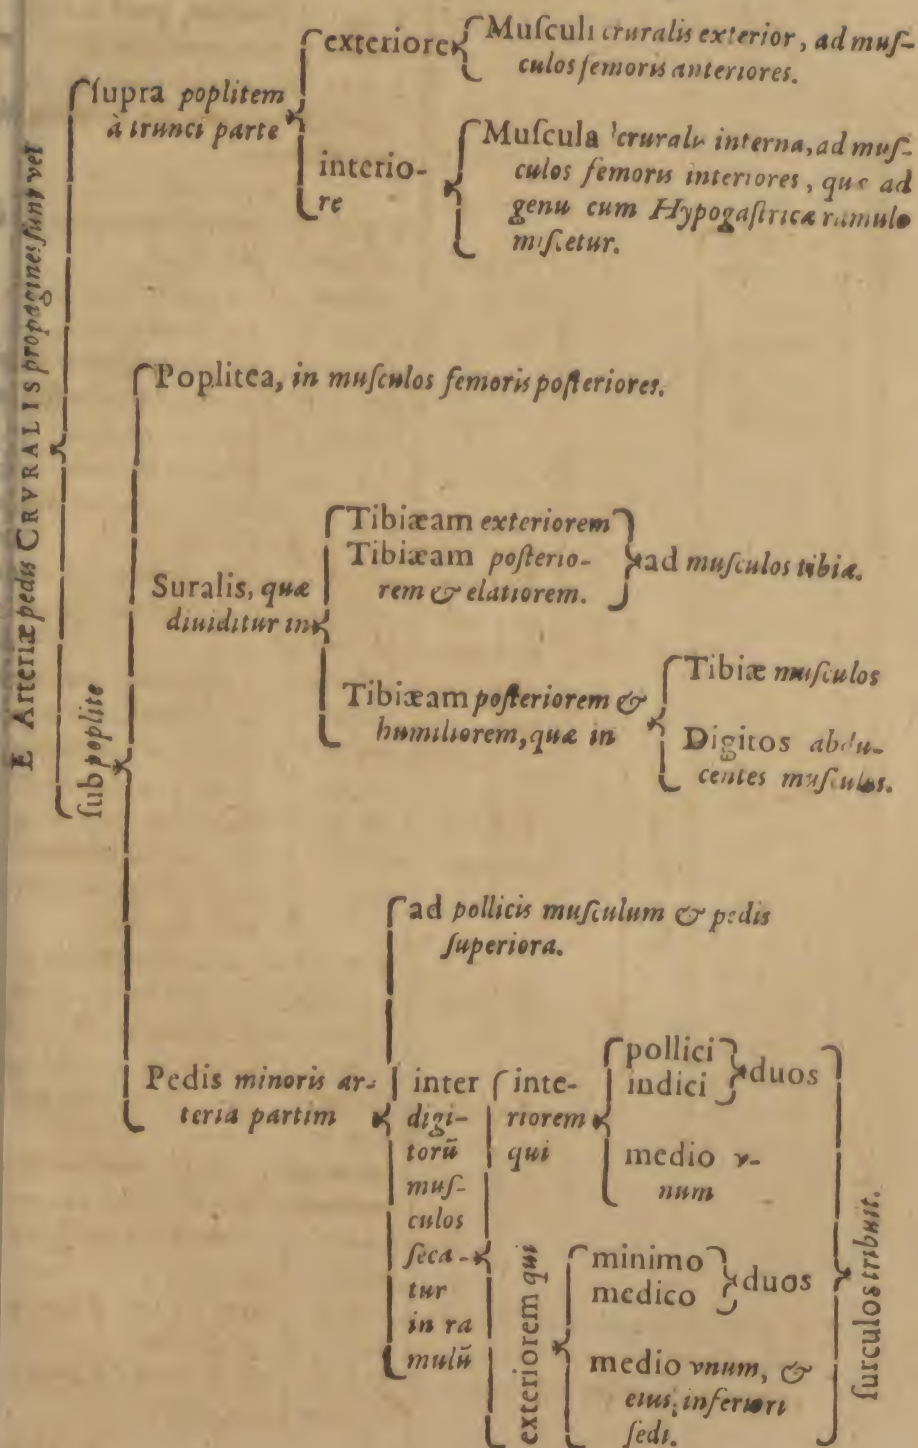 E Arteriæ pedis CRVRALIS propagines sunt vel
ſupra poplitem
à trunci parte
exteriore
Muſculi cruralis exterior, ad muſ-
culos femoris anteriores.
interio-
re
Muſcula cruralis interna, ad muſ-
culos femoris interiores, quæ ad
genu cum Hypogaſtricæ ramulo
miſcetur.
ſub poplite
Poplitea, in muſculos femoris poſteriores.
Suralis, quæ
diuiditur in
Tibiæam exteriorem
Tibiæam poſterio-
rem & elatiorem.
ad muſculos tibiæ.
Tibiæam poſteriorem &
humiliorem, quæ in
Tibiæ muſculos
Digitos abdu-
centes muſculos.
Pedis minoris ar-
teria partim
ad pollicis muſculum & pedis
ſuperiora.
inter
digi-
torũ
muſ-
culos
ſeca-
tur
in ra
mulũ
inte-
riorem
qui
pollici
indici
duos
medio v-
num
exteriorem qui
minimo
medico
duos
medio vnum, &
eius inferiori
ſedi.
ſurculos tribuit.